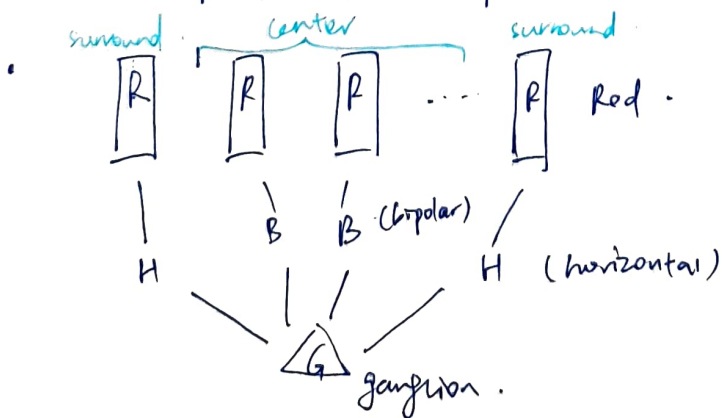 surround center surround
R R R .... R Rod.
B B (bipolar)
H H (horizontal)
G
ganglion.